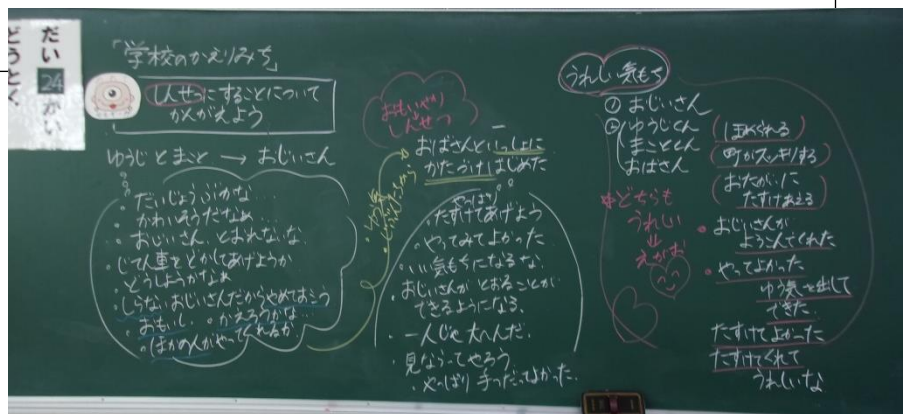 だい24かい
どうとく
「学校のかえりみち」
しんせつにすることについて
かんがえよう
ゆうじとまこと → おじいさん
・だいじょうぶかな…
・かわいそうだなぁ…
・おじいさん、とおれないな。
・じてん車をどかしてあげようか
・どうしようかなぁ
・しらないおじいさんだからやめておこう
・おもいし ・かえろうかな…
・ほかの人がやってくれるか
おもいやり
しんせつ
おばさんといっしょに
かたづけはじめた
・やっぱり
たすけてあげよう
・やってみてよかった
・いい気もちになるな。
・おじいさんがとおることが
できるようになる。
・一人じゃ大へんだ。
・見ならってやろう
・やっぱり手つだってよかった。
うれしい気もち
① おじいさん
② ゆうじくん
まことくん
おばさん
どちらも
うれしい
⇓
えがお
ほめられる
町がスッキリする
おたがいに
たすけあえる
・おじいさんが
よろこんでくれた
・やってよかった
ゆう気を出して
できた
たすけてよかった
たすけてくれて
うれしいな